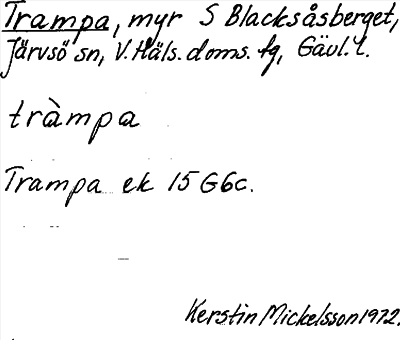 Trampa, myr S Blacksåsberget,
Järvsö sn, V. Häls. doms. fg, Gävl. l.
tràmpa
Trampa ek 15 G6c.
Kerstin Mickelsson 1972.